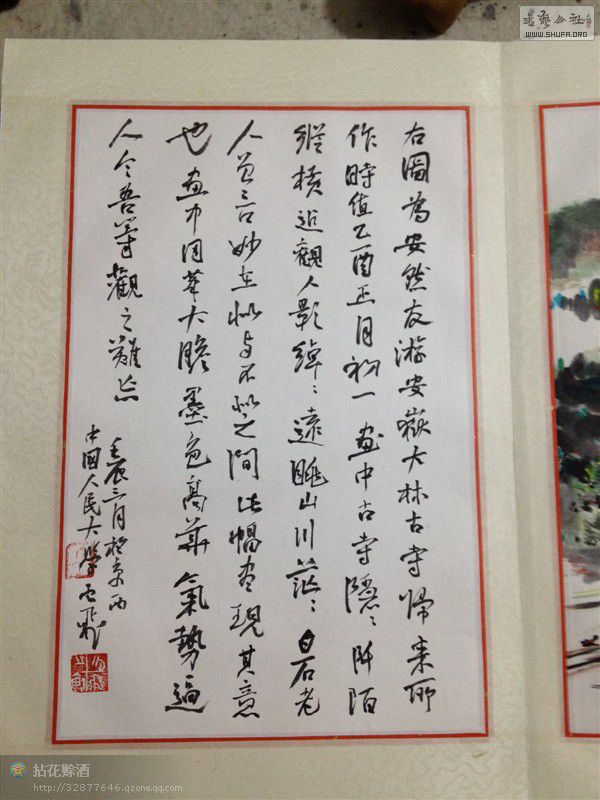 右圖為安然友游安嶽大林古寺歸來所
作時值乙酉正月初一畫中古寺隱:阡陌
縱橫近觀人影綽:遠眺山川茫:白石老
人曾言妙在似与不似之間此幅盡現其意
也畫中用筆大膽墨色高華氣勢逼
人令吾等觀之難忘
壬辰三月於京西
中國人民大學
書藝公社
WWW.SHUFA.ORG
拈花赊酒
http://32877646.qzone.qq.com